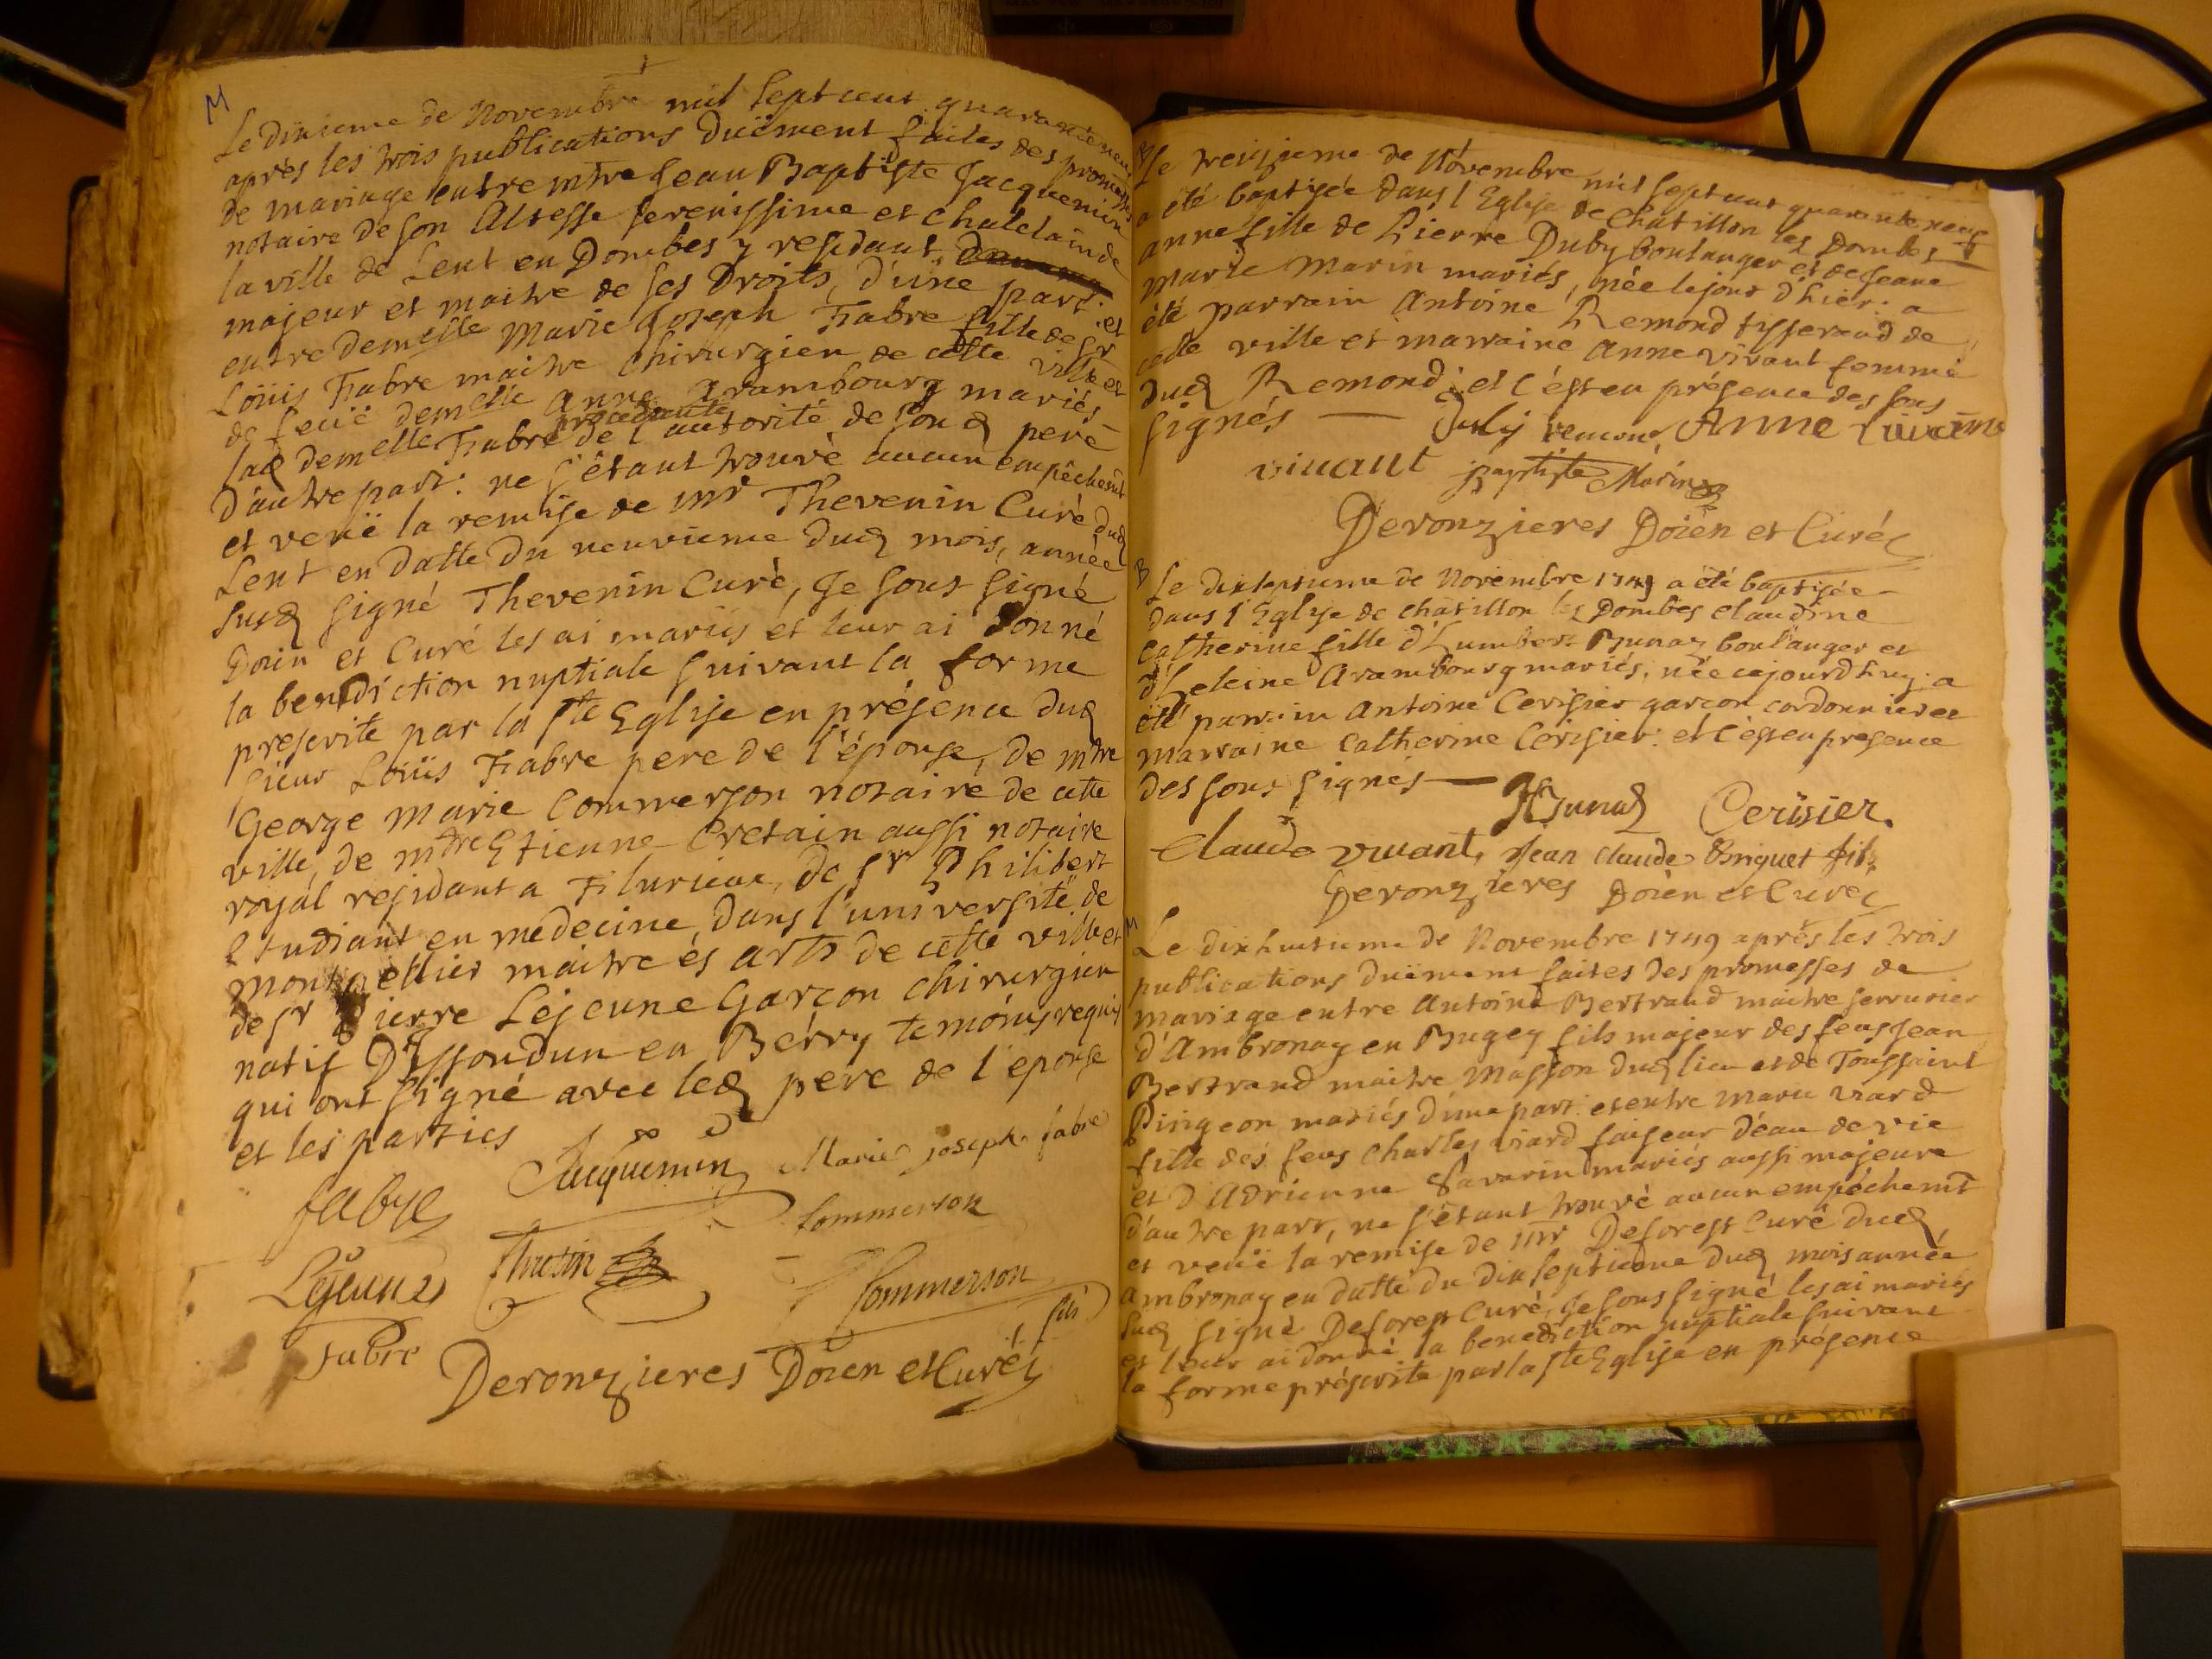 M
Le dixieme de Novembre mil sept cent quaranteneuf
après les trois publications düëment faites des promesses
de mariage entre mtre Jean Baptiste Jacquemin
notaire de son Altesse serenissime et chatelain de
la ville de Lent en Dombes y residant
majeur et maitre de ses Droits, d'une part. et
entre demelle Marie Joseph Fabre fille de sr
Loüis Fabre maitre chirurgien de cette ville et
de feüe demelle Anne Arambourg mariés
procedante
lad demelle Fabre de l'autorité de soud pere
d'autre part: ne s'étant trouvé aucun empêchemt
et veüe la remise de mr Thevenin Curé dud
Lent en datte du neuvieme dud mois, année
susd signé Thevenin Curé, Je sous signé
Doien et Curé les ai mariés et leur ai donné
la benediction nuptiale suivant la forme
prescrite par la ste Eglise en présence dud
sieur Loüis Fabre pere de l'épouse, de mtre
George Marie Commerson notaire de cette
ville, de mtre Etienne Cretain aussi notaire
royal residant a Flurieux, de sr Philibert
Etudiant en médecine dans l'université de
montpellier maitre és arts de cette ville et
de sr Pierre Lejeune Garçon chirurgien
natif D'Issoudun en Berry temoins requis
qui ont signé avec led pere de l'épouse
et les parties
Jacquemin Marie joseph fabre
fabre
Commerson
Lejeune
Commerson
fils
Fabre
Deronzieres Doien et Curé
B
Le treizieme de Novembre mil sept cent quaranteneuf
a été baptisée dans l'Eglise de Chatillon les Dombes
anne fille de Pierre Duby boulanger et de Jeane
Marie Marin mariés, née le jour d'hier: a
été parrain Antoine Remond tisserand de
cette ville et marraine Anne vivant femme
dud Remond: et c'est en présence des sous
signés — Duby remond Anne
vivant baptiste Marin
Deronzieres Doien et Curé
B
Le dixseptieme de Novembre 1749 a été baptisée
dans l'Eglise de châtillon les Dombes claudine
catherine fille d'humbert Brunaz boulanger et
d'heleine Arambourg mariés, née cejourdhuy: a
été parrain Antoine Cerisier garcon cordonnier et
marraine Catherine Cerisier: et c'est en presence
des sous signés — HBrunaz Cerisier.
claude vivant, Jean claude Briguet fils
Deronzieres Doien et Curé
M
Le dixhuitieme de Novembre 1749 après les trois
publications düëment faites des promesses de
mariage entre Antoine Bertrand maitre serrurier
d'Ambronay en Bugey fils majeur des feus Jean
Bertrand maitre masson dud lieu et de Toussaint
Pingeon mariés d'une part: et entre marie viard
fille des feus Charles viard faiseur d'eau de vie
et d'Adrienne Savarin mariés aussi majeure
d'autre part, ne s'étant trouvé aucun empêchemt
et veüe la remise de mr Deforest Curé dud
ambronay en datte du dixseptieme dud mois année
susd signé Deforest Curé, Je sous signé les ai mariés
et leur ai donné la benediction nuptiale suivant
la forme préscrite par la ste Eglise en présence